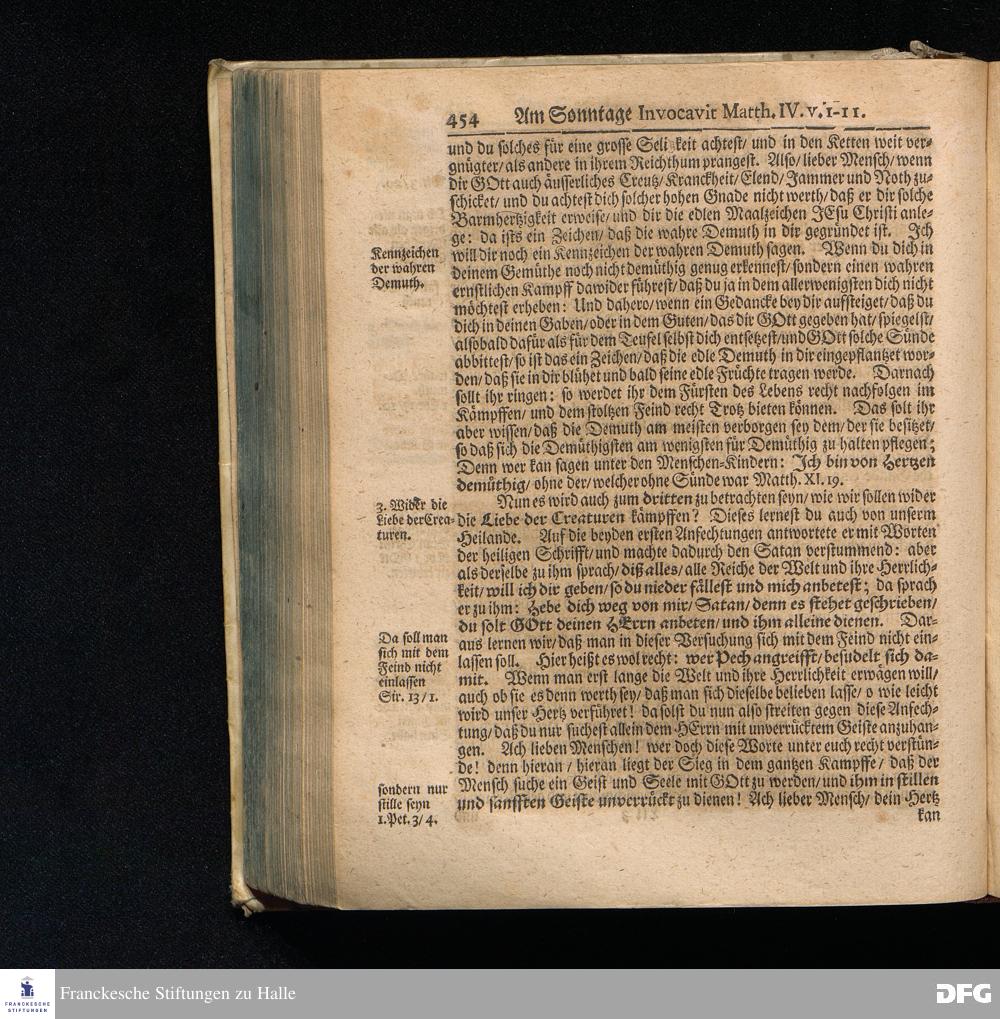 454 Am Sonntage Invocavit Matth. IV. v. 1-11.
und du solches für eine grosse Seligkeit achtest/ und in den Ketten weit ver-
gnügter/ als andere in ihrem Reichthum prangest. Also/ lieber Mensch/ wenn
dir GOtt auch äusserliches Creutz/ Kranckheit/ Elend/ Jammer und Noth zu-
schicket/ und du achtest dich solcher hohen Gnade nicht werth/ daß er dir solche
Barmhertzigkeit erweise/ und dir die edlen Maalzeichen JEsu Christi anle-
ge: da ists ein Zeichen/ daß die wahre Demuth in dir gegründet ist. Ich
will dir noch ein Kennzeichen der wahren Demuth sagen. Wenn du dich in
deinem Gemüthe noch nicht demüthig genug erkennest/ sondern einen wahren
ernstlichen Kampff dawider führest/ daß du ja in dem allerwenigsten dich nicht
möchtest erheben: Und dahero/ wenn ein Gedancke bey dir auffsteiget/ daß du
dich in deinen Gaben/ oder in dem Guten/ das dir GOtt gegeben hat/ spiegelst/
alsobald dafür als für dem Teufel selbst dich entsetzest/ und GOtt solche Sünde
abbittest/ so ist das ein Zeichen/ daß die edle Demuth in dir eingepflantzet wor-
den/ daß sie in dir blühet und bald seine edle Früchte tragen werde. Darnach
sollt ihr ringen: so werdet ihr dem Fürsten des Lebens recht nachfolgen im
Kämpffen/ und dem stoltzen Feind recht Trotz bieten können. Das solt ihr
aber wissen/ daß die Demuth am meisten verborgen sey dem/ der sie besitzet/
so daß sich die Demüthigsten am wenigsten für Demüthig zu halten pflegen;
Denn wer kan sagen unter den Menschen-Kindern: Ich bin von Hertzen
demüthig/ ohne der/ welcher ohne Sünde war Matth. XI. 19.
Kennzeichen
der wahren
Demuth.
Nun es wird auch zum dritten zu betrachten seyn/ wie wir sollen wider
die Liebe der Creaturen kämpffen? Dieses lernest du auch von unserm
Heilande. Auf die beyden ersten Anfechtungen antwortete er mit Worten
der heiligen Schrifft/ und machte dadurch den Satan verstummend: aber
als derselbe zu ihm sprach/ diß alles/ alle Reiche der Welt und ihre Herrlich-
keit/ will ich dir geben/ so du nieder fällest und mich anbetest; da sprach
er zu ihm: Hebe dich weg von mir/ Satan/ denn es stehet geschrieben/
du solt GOtt deinen HErrn anbeten/ und ihm alleine dienen. Dar-
aus lernen wir/ daß man in dieser Versuchung sich mit dem Feind nicht ein-
lassen soll. Hier heißt es wol recht: wer Pech angreifft/ besudelt sich da-
mit. Wenn man erst lange die Welt und ihre Herrlichkeit erwägen will/
auch ob sie es denn werth sey/ daß man sich dieselbe belieben lasse/ o wie leicht
wird unser Hertz verführet! da solst du nun also streiten gegen diese Anfech-
tung/ daß du nur suchest allein dem HErrn mit unverrücktem Geiste anzuhan-
gen. Ach lieben Menschen! wer doch diese Worte unter euch recht verstün-
de! denn hieran/ hieran liegt der Sieg in dem gantzen Kampffe/ daß der
Mensch suche ein Geist und Seele mit GOtt zu werden/ und ihm in stillen
und sanfften Geiste unverrückt zu dienen! Ach lieber Mensch/ dein Hertz
kan
3. Wider die
Liebe der Crea-
turen.
Da soll man
sich mit dem
Feind nicht
einlassen
Sir. 13/1.
sondern nur
stille seyn
1. Pet. 3/4.
FRANCKESCHE
STIFTUNGEN
Franckesche Stiftungen zu Halle
DFG